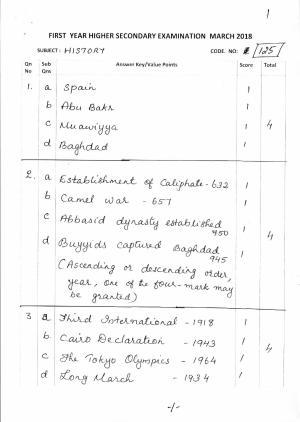 1
FIRST YEAR HIGHER SECONDARY EXAMINATION MARCH 2018
SUBJECT: HISTORY CODE NO: 125
Qn No Sub Qns Answer Key/Value Points Score Total
1. a Spain 1
b Abu Bakr 1
c Muawiyya 1 4
d Baghdad 1
2. a Establishment of Caliphate - 632 1
b Camel War - 657 1
c Abbasid dynasty established 1
950
d Buyyids captured Baghdad 1 4
945
(Ascending or descending order,
year, one of the four-mark may
be granted)
3 a Third International - 1918 1
b Cairo Declaration - 1943 1
c The Tokyo Olympics - 1964 1 4
d Long March - 1934 1
-/-